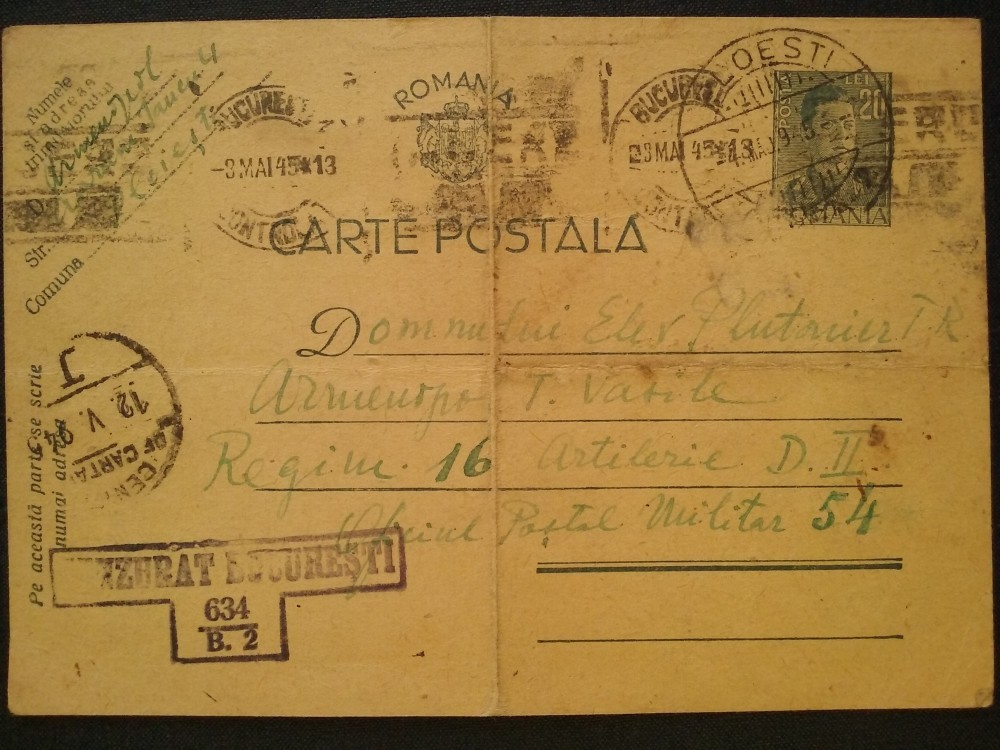 Numele
și adresa
trimițătorului
D.
Str.
Comuna
ROMANIA
BUCUREȘTI
-8 MAI 45 * 13
BUCUREȘTI
-8 MAI 45 * 13
PLOESTI
LEI 20
POSTA
ROMANIA
CARTE POSTALA
Domnului Elev Plutonier T R
Armenopo T. Vasile
Regim. 16 Artilerie D. II
Oficiul Postal Militar 54
Pe această parte se scrie
numai adresa
12. V.
CENZURAT BUCUREȘTI
634
B. 2